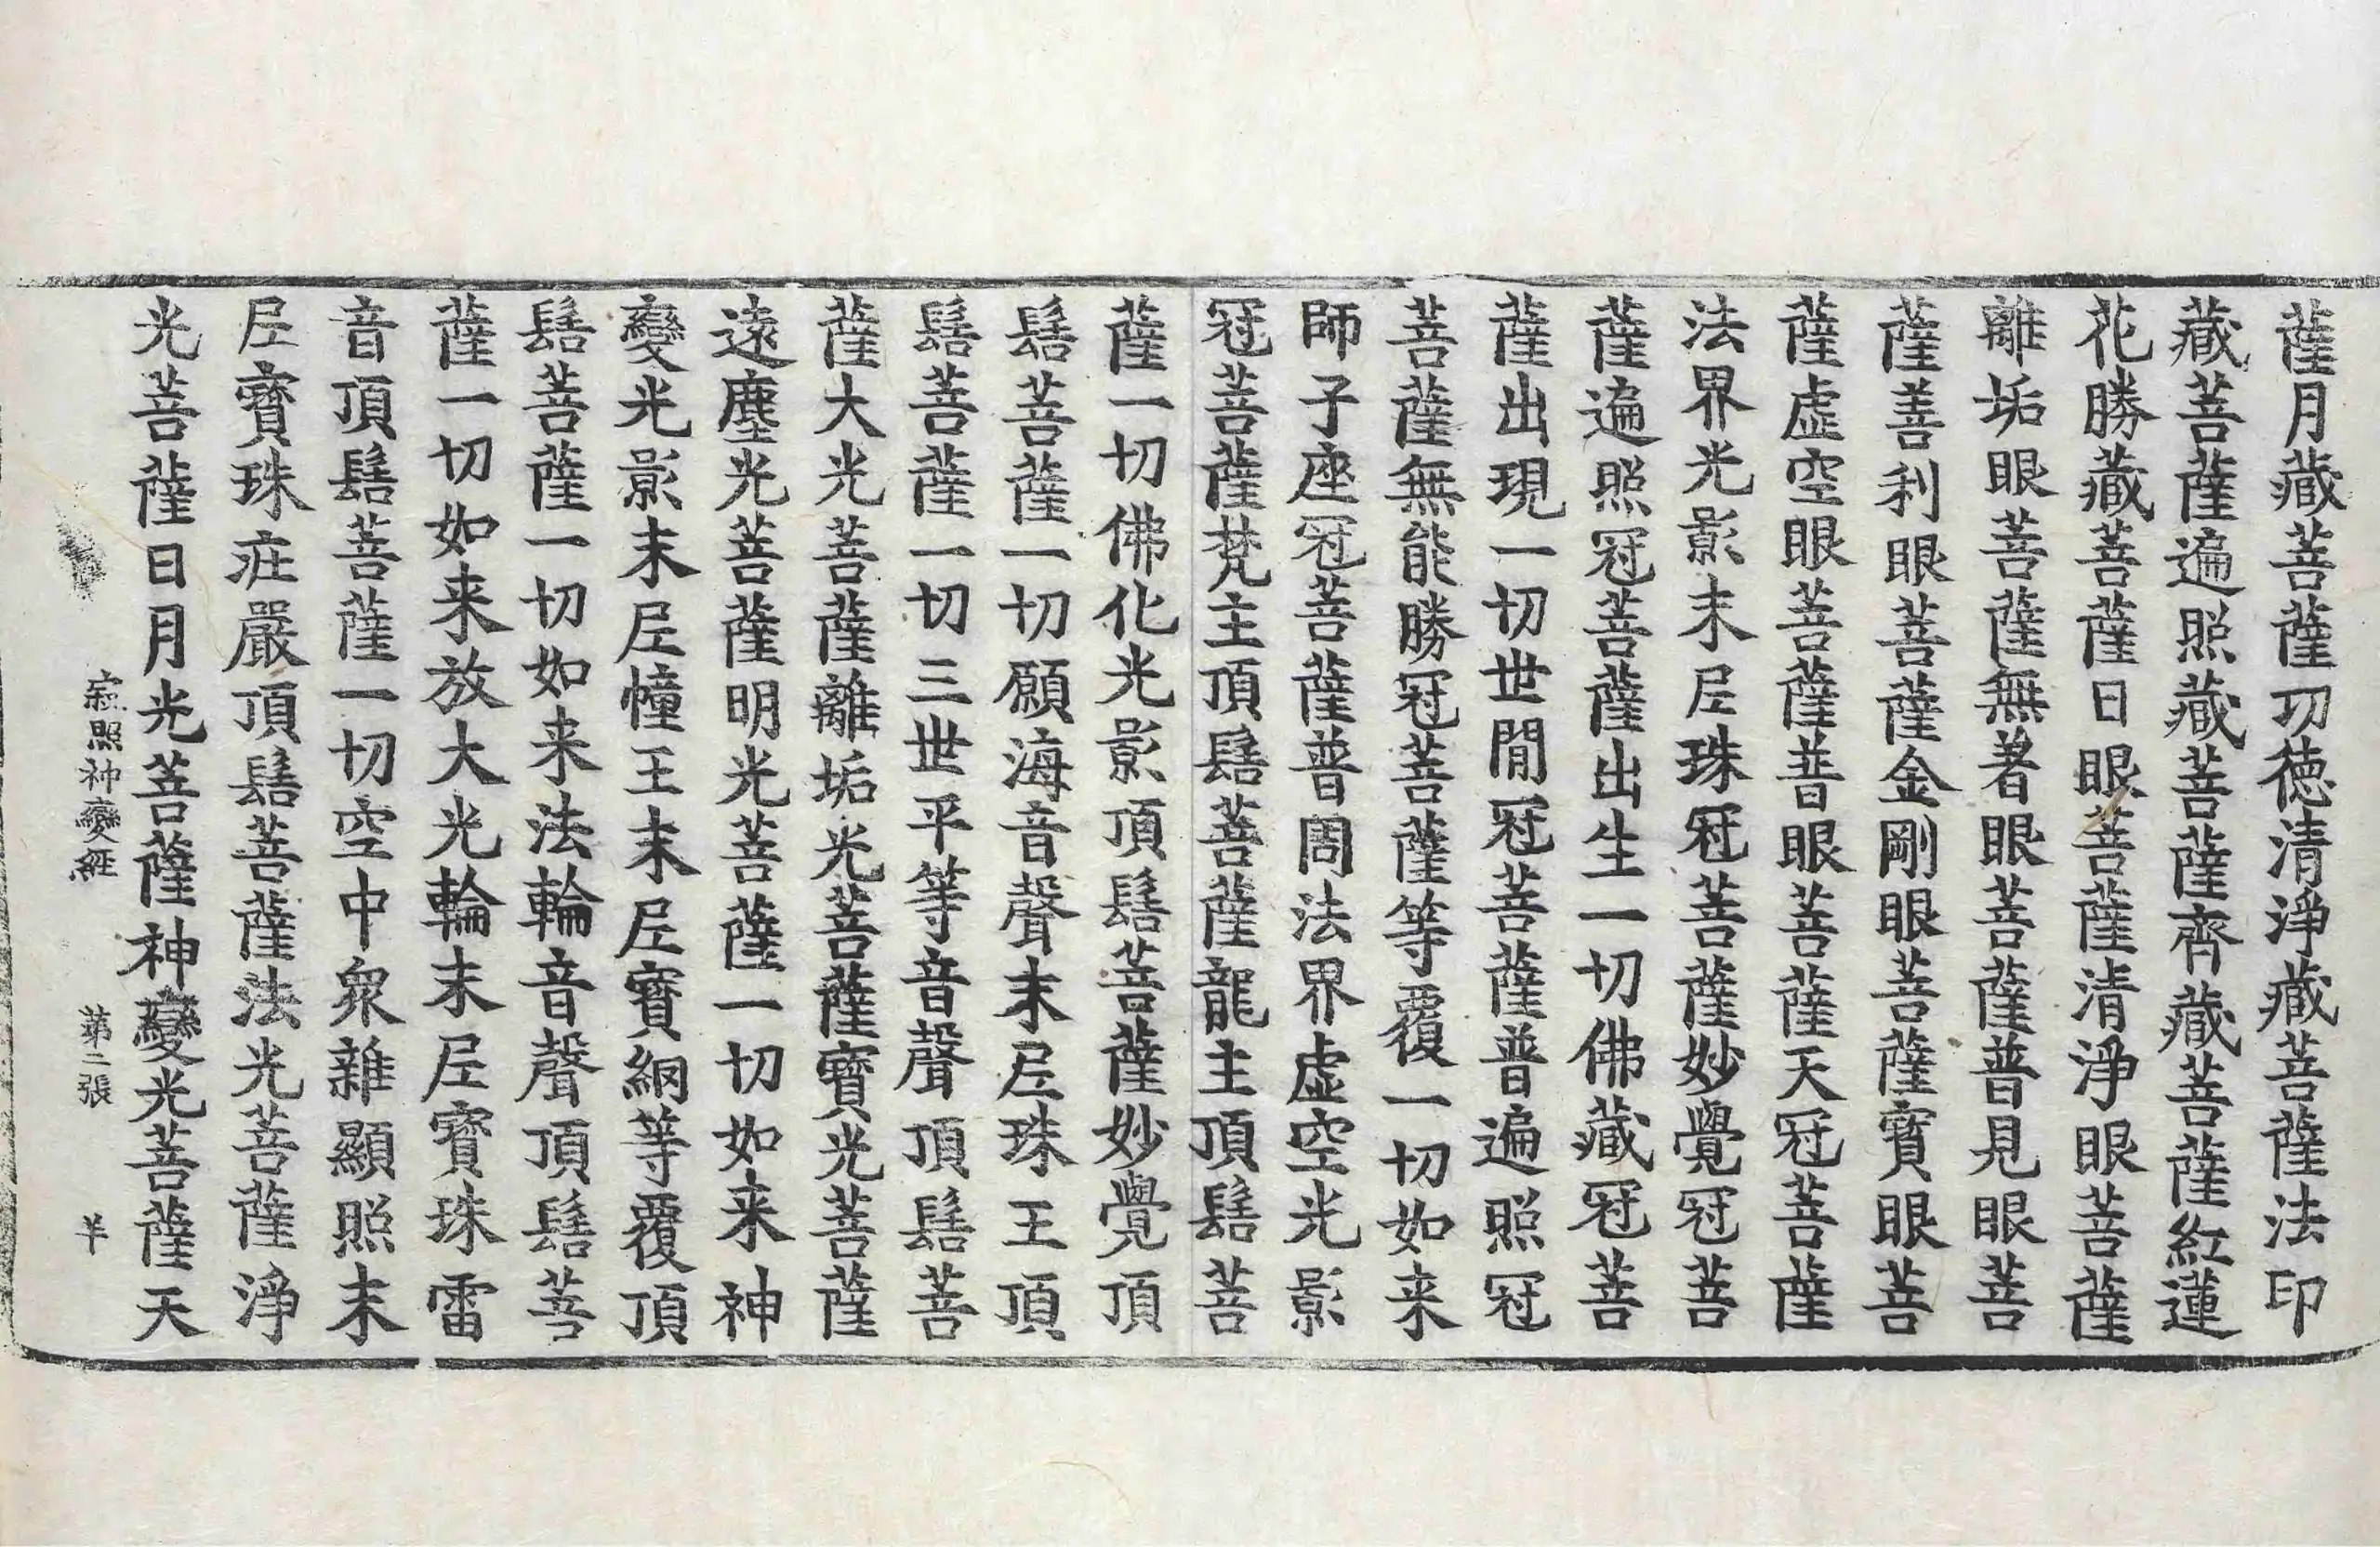 薩月藏菩薩功徳清淨藏菩薩法印
藏菩薩遍照藏菩薩齊藏菩薩紅蓮
花勝藏菩薩日眼菩薩清淨眼菩薩
離垢眼菩薩無著眼菩薩普見眼菩
薩善利眼菩薩金剛眼菩薩寶眼菩
薩虛空眼菩薩普眼菩薩天冠菩薩
法界光影末尼珠冠菩薩妙覺冠菩
薩遍照冠菩薩出生一切佛藏冠菩
薩出現一切世間冠菩薩普遍照冠
菩薩無能勝冠菩薩等覆一切如来
師子座冠菩薩普周法界虛空光影
冠菩薩梵主頂髻菩薩龍主頂髻菩
薩一切佛化光影頂髻菩薩妙覺頂
髻菩薩一切願海音聲末尼珠王頂
髻菩薩一切三世平等音聲頂髻菩
薩大光菩薩離垢光菩薩寶光菩薩
遠塵光菩薩明光菩薩一切如来神
變光影末尼幢王末尼寶網等覆頂
髻菩薩一切如来法輪音聲頂髻菩
薩一切如来放大光輪末尼寶珠雷
音頂髻菩薩一切空中衆雜顯照末
尼寶珠莊嚴頂髻菩薩法光菩薩淨
光菩薩日月光菩薩神變光菩薩天
寂照神變經 第二張 羊